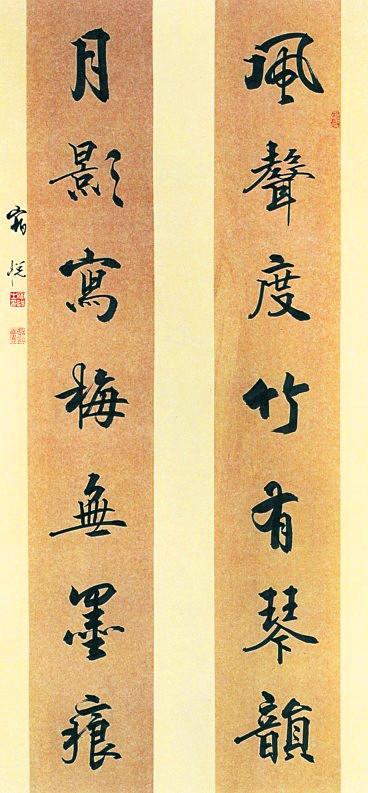 珮聲度竹有琴韻
月影寫梅無墨痕